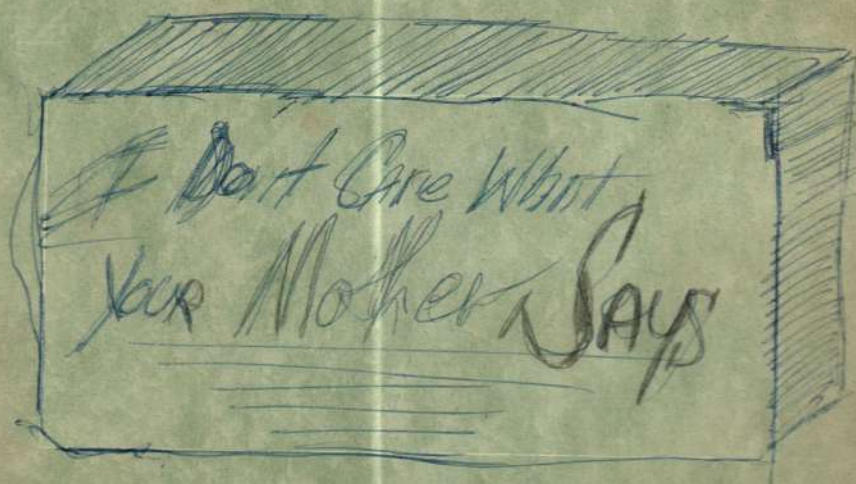 I Dont Care What
Your Mother Says